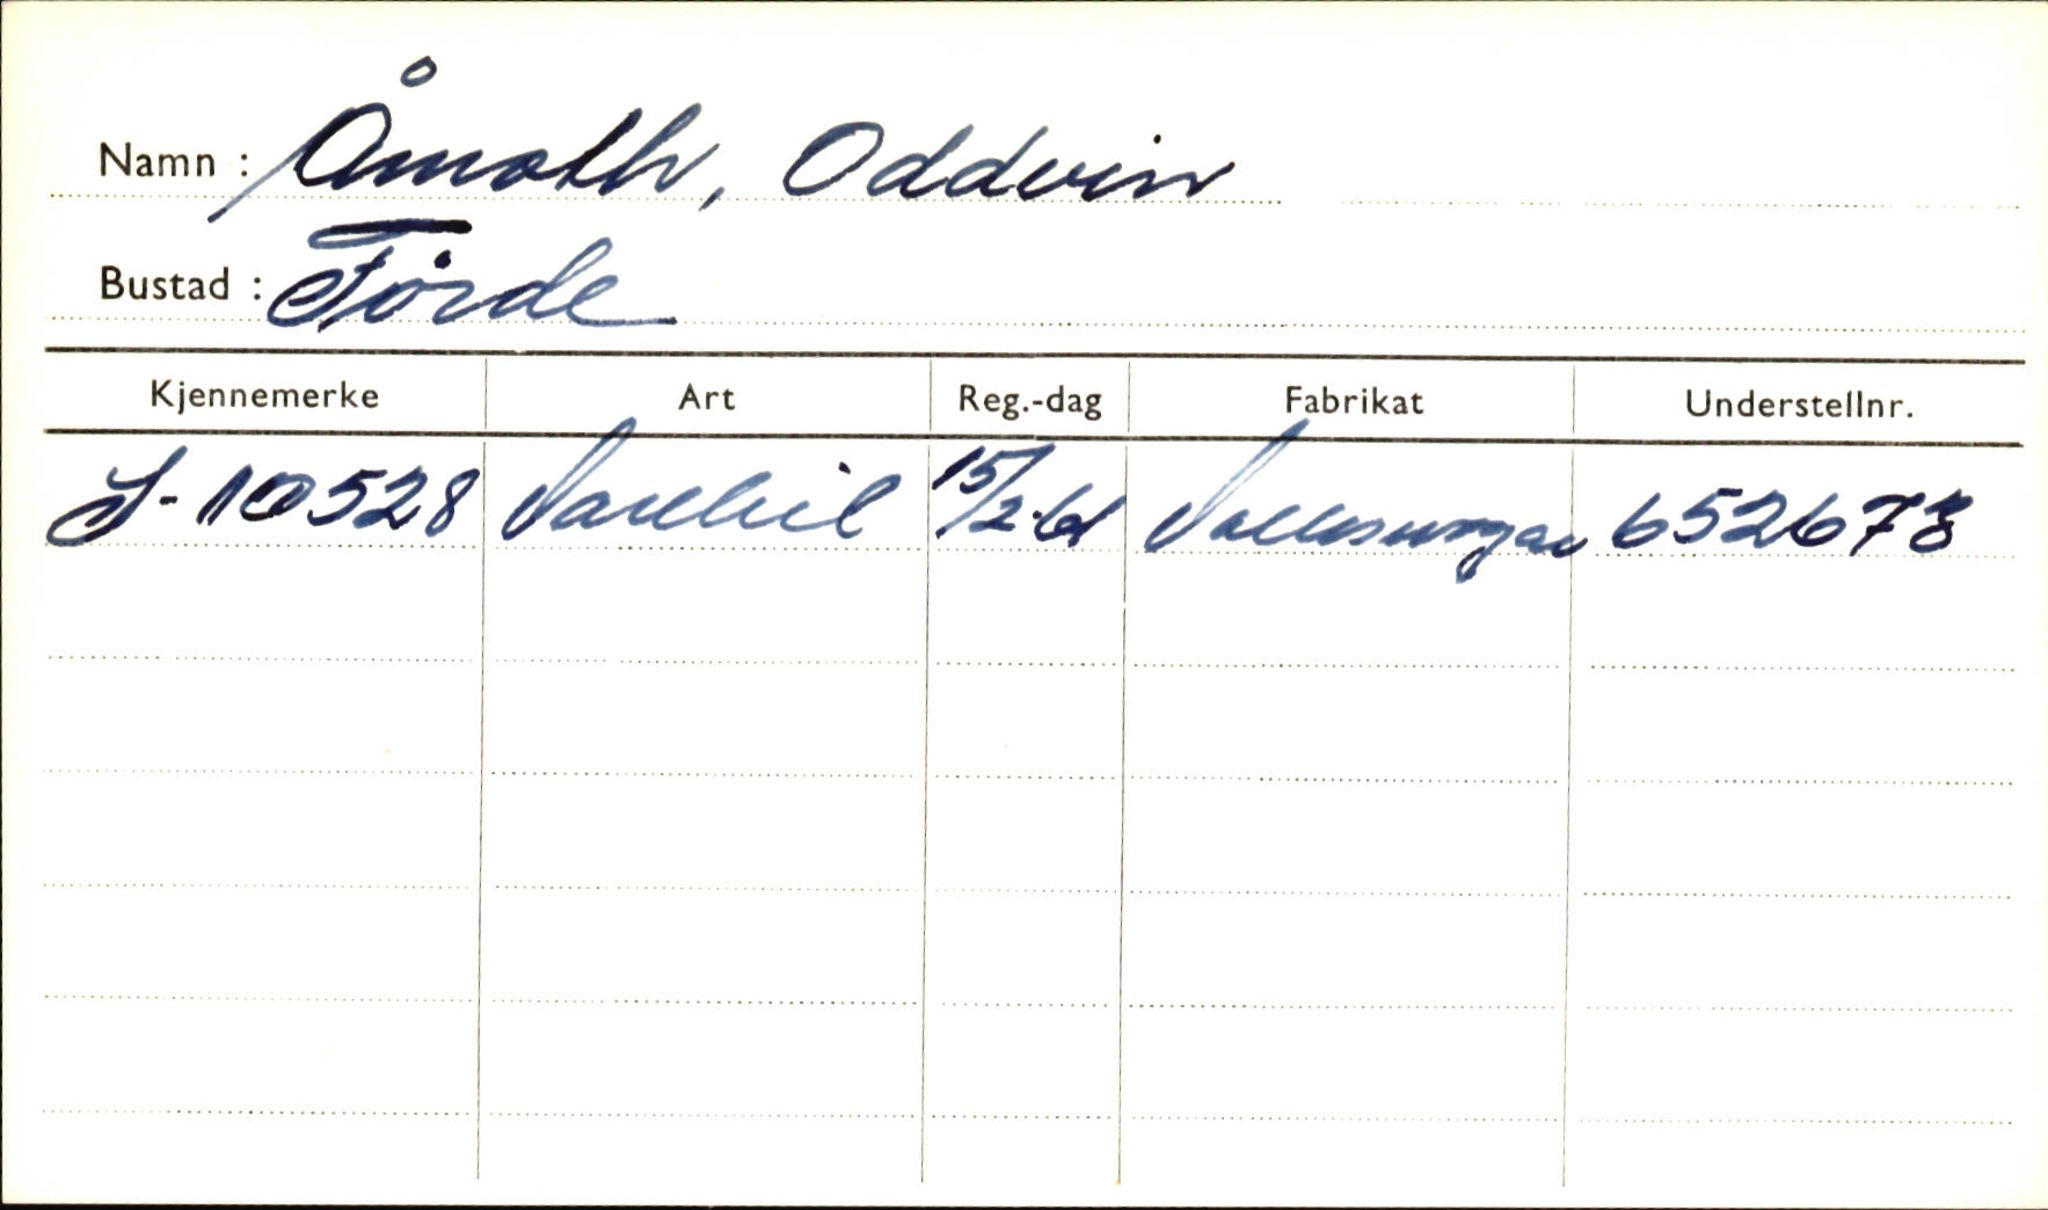 Namn : Åmoth, Oddvin
Bustad : Førde
Kjennemerke Art Reg.-dag Fabrikat Understellnr.
S-10528 Varebil 15/2-61 Volkswagen 652678